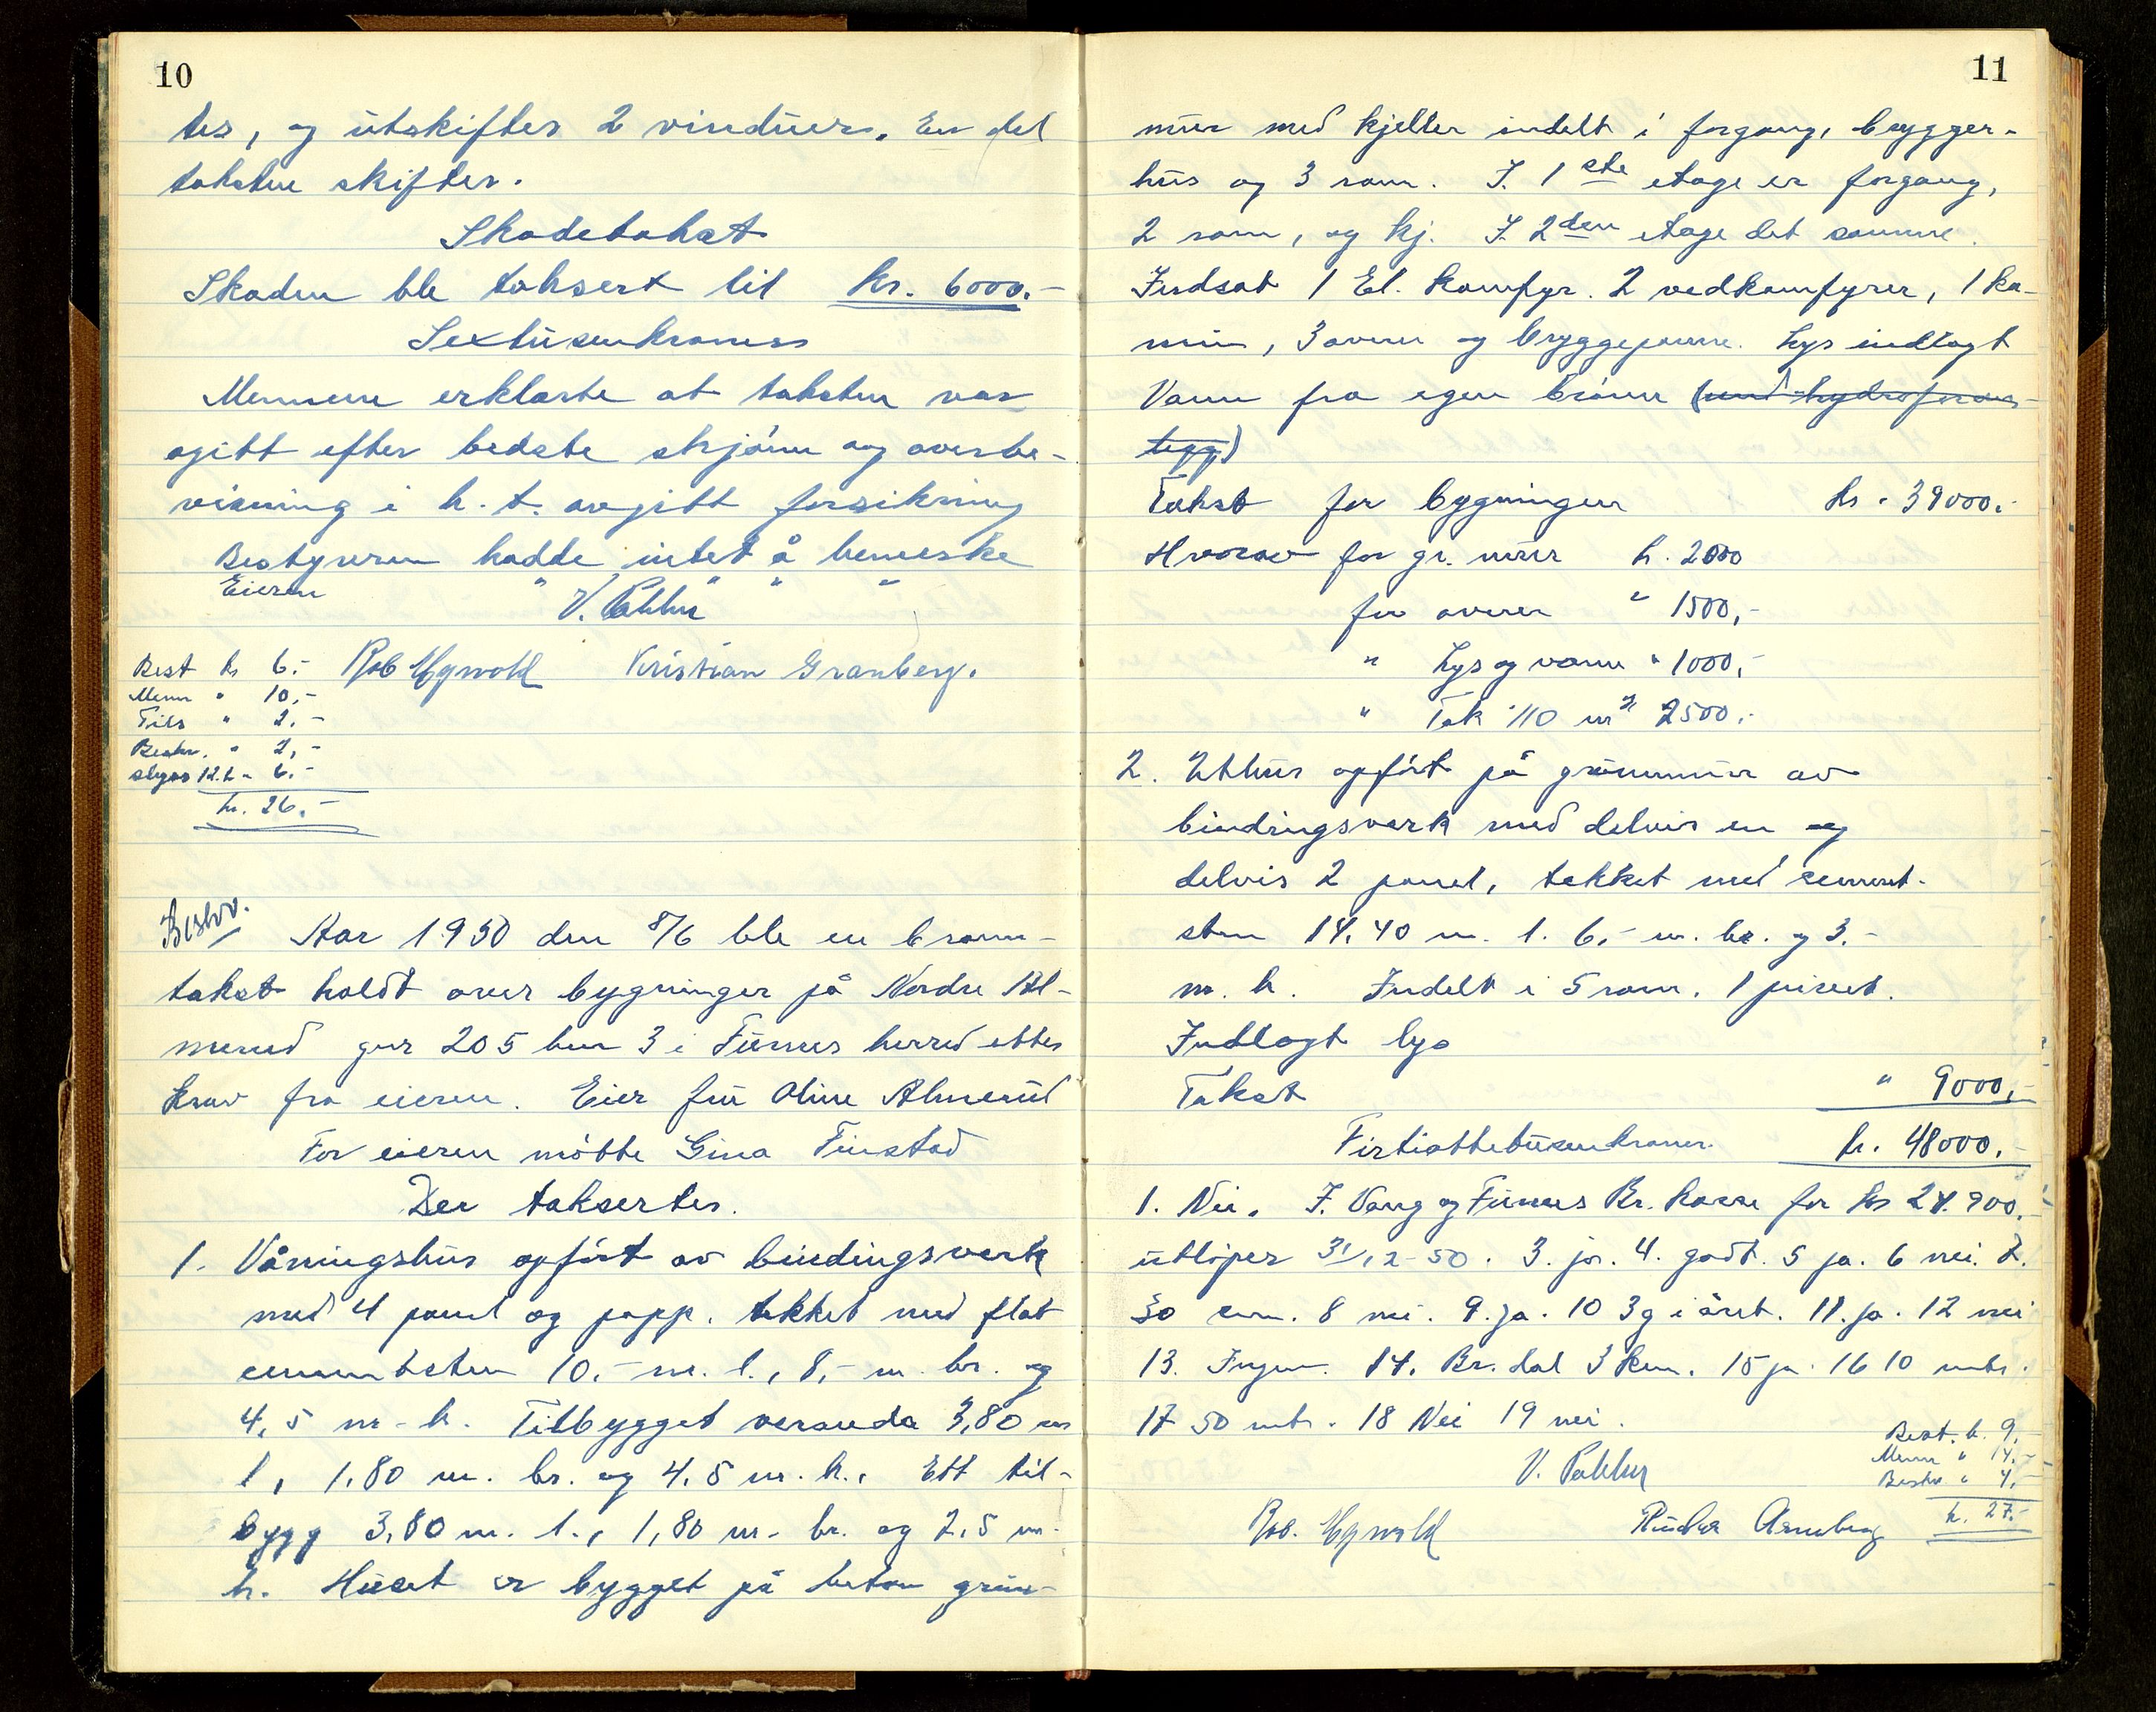 10
tes, og utskiftes 2 vinduer. En del
taksten skiftes.
Skadetakst
Skaden ble taksert til kr. 6000.-
Sextusenkroner
Mennene erklærte at taksten var
agitt efter bedste skjønn og overbe-
visning i h. t. avgitt forsikring
Bestyreren hadde intet å bemerke
Eieren " " " "
V.
Best kr 6.- Rob Kristian Granberg.
Menn " 10,-
Tils " 2.-
Beskr. " 2,-
skyss 12. k - 6.-
kr. 26.-
Beskr.
Aar 1950 den 8/6 ble en brann-
takst holdt over bygninger på Nordre Al-
merud gnr 205 bnr 3 i Furnes herred etter
krav fra eieren. Eier fru Oline Almerud
For eieren møtte Gina Finstad
Der taksertes.
1. Våningshus opført av bindingsverk
med 4 panel og papp. tekket med flat
cementsten 10.- m. l., 8,- m. br. og
4,5 m - h. Tilbygget veranda 3,80 m
l, 1,80 m. br. og 4,5 m. h., Ett til-
bygg 3,80 m. l., 1,80 m - br. og 2,5 m.
h. Huset er bygget på beton grun-
11
mur med kjeller indelt i forgang, brygger-
hus og 3 rom. I. 1ste etage er forgang,
2 rom, og kj. I. 2den etage det samme.
Indsat 1 El. komfyr. 2 vedkomfyrer, 1 ka-
min, 3 ovner og bryggepanne. Lys indlagt
Vann fra egen brønn (med hydroforan-
legg)
Takst for bygningen kr. 39000.-
Hvorav for gr. mur k. 2000
for ovner " 1500,-
" Lys og vann " 1000,-
" Tak 110 m2 2500.-
2. Uthus opført på grunnmur av
bindringsverk med delvis en og
delvis 2 panel, tekket med cement-
sten 14,40 m. l. 6,- m. br. og 3.-
m. h. Indelt i 5 rom. 1 privet.
Indlagt lys
Takst " 9000,-
Firtiottetusenkroner. kr. 48000.-
1. Nei. I. Vang og Furnes Br. kasse for kr 24.900.-
utløper 31/12-50. 3. ja. 4. godt. 5 ja. 6 nei. 7.
30 cm. 8 nei. 9. ja. 10 3 g i året. 11. ja. 12 nei
13. Ingen. 14. Br. dal 3 km. 15 ja. 16 10 mtr.
17 50 mtr. 18 Nei 19 nei.
Best. k. 9.-
Menn " 14.-
Beskr " 4.-
k. 27.-
V.
Rob.